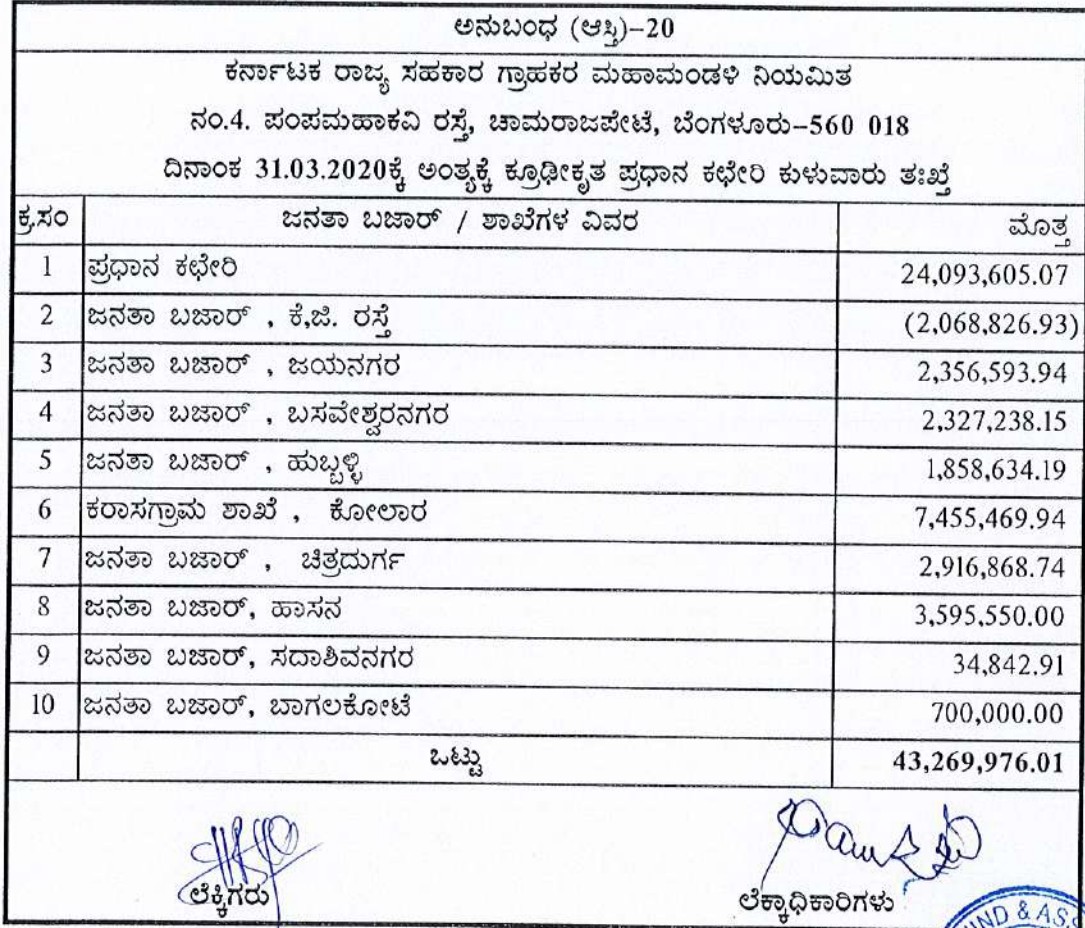 ಅನುಬಂಧ (ಆಸ್ತಿ)-20
ಕರ್ನಾಟಕ ರಾಜ್ಯ ಸಹಕಾರ ಗ್ರಾಹಕರ ಮಹಾಮಂಡಳಿ ನಿಯಮಿತ
ನಂ.4. ಪಂಪಮಹಾಕವಿ ರಸ್ತೆ, ಚಾಮರಾಜಪೇಟೆ, ಬೆಂಗಳೂರು-560 018
ದಿನಾಂಕ 31.03.2020ಕ್ಕೆ ಅಂತ್ಯಕ್ಕೆ ಕ್ರೂಢೀಕೃತ ಪ್ರಧಾನ ಕಛೇರಿ ಕುಳುವಾರು ತಃಖ್ತೆ
ಕ್ರ.ಸಂ ಜನತಾ ಬಜಾರ್ / ಶಾಖೆಗಳ ವಿವರ ಮೊತ್ತ
1 ಪ್ರಧಾನ ಕಛೇರಿ 24,093,605.07
2 ಜನತಾ ಬಜಾರ್ , ಕೆ,ಜಿ. ರಸ್ತೆ (2,068,826.93)
3 ಜನತಾ ಬಜಾರ್ , ಜಯನಗರ 2,356,593.94
4 ಜನತಾ ಬಜಾರ್ , ಬಸವೇಶ್ವರನಗರ 2,327,238.15
5 ಜನತಾ ಬಜಾರ್ , ಹುಬ್ಬಳ್ಳಿ 1,858,634.19
6 ಕರಾಸಗ್ರಾಮ ಶಾಖೆ , ಕೋಲಾರ 7,455,469.94
7 ಜನತಾ ಬಜಾರ್ , ಚಿತ್ರದುರ್ಗ 2,916,868.74
8 ಜನತಾ ಬಜಾರ್, ಹಾಸನ 3,595,550.00
9 ಜನತಾ ಬಜಾರ್, ಸದಾಶಿವನಗರ 34,842.91
10 ಜನತಾ ಬಜಾರ್, ಬಾಗಲಕೋಟೆ 700,000.00
ಒಟ್ಟು 43,269,976.01
ಲೆಕ್ಕಿಗರು ಲೆಕ್ಕಾಧಿಕಾರಿಗಳು